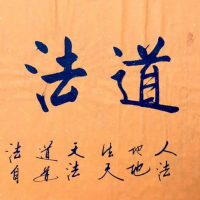 道法
人法
地地
法天
天法
道道
法自